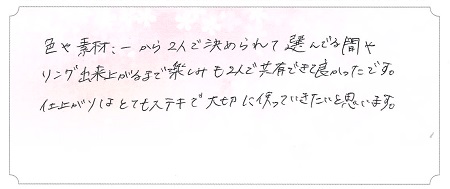 色や素材、一から2人で決められて選んでる間や
リング出来上がるまで楽しみも2人で共有できて良かったです。
仕上がりはとてもステキで大切に使っていきたいと思います。